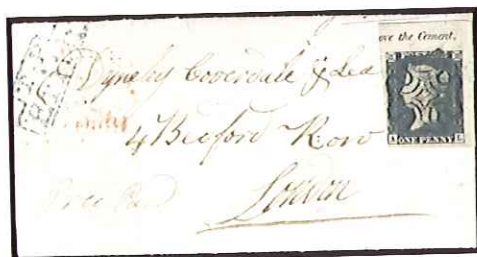 ove the Cement.
Dyneley Coverdale & Lea
4 Bedford Row
London
ONE PENNY